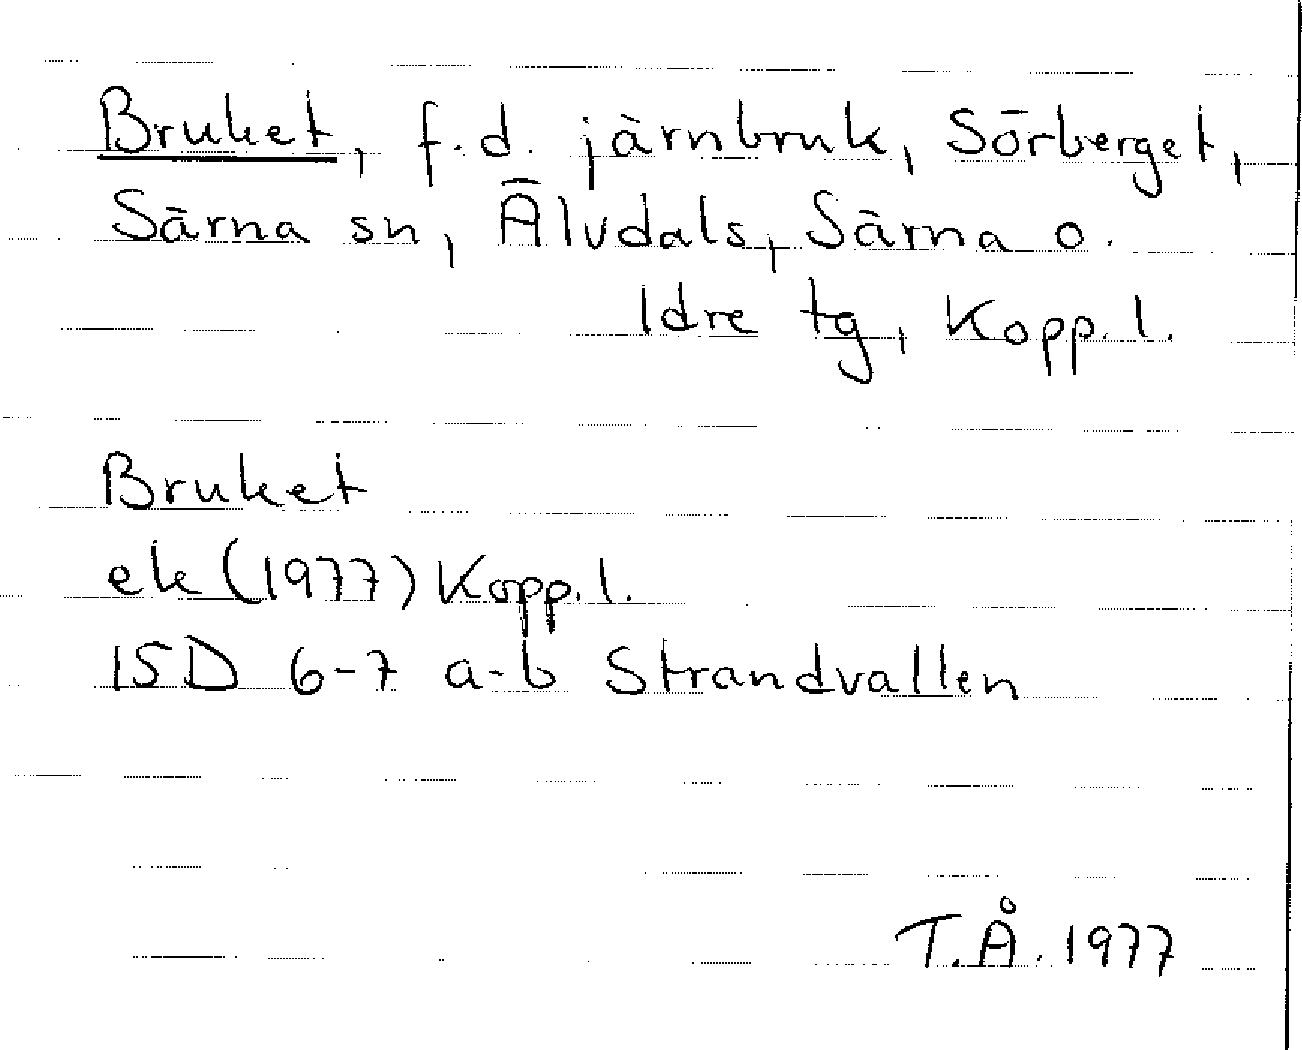 Bruket, f.d. järnbruk, Sörberget,
Särna sn, Älvdals, Särna o.
Idre tg, Kopp. l.
Bruket
ek (1977) Kopp. l.
15D 6-7 a-b Strandvallen
T.Å. 1977